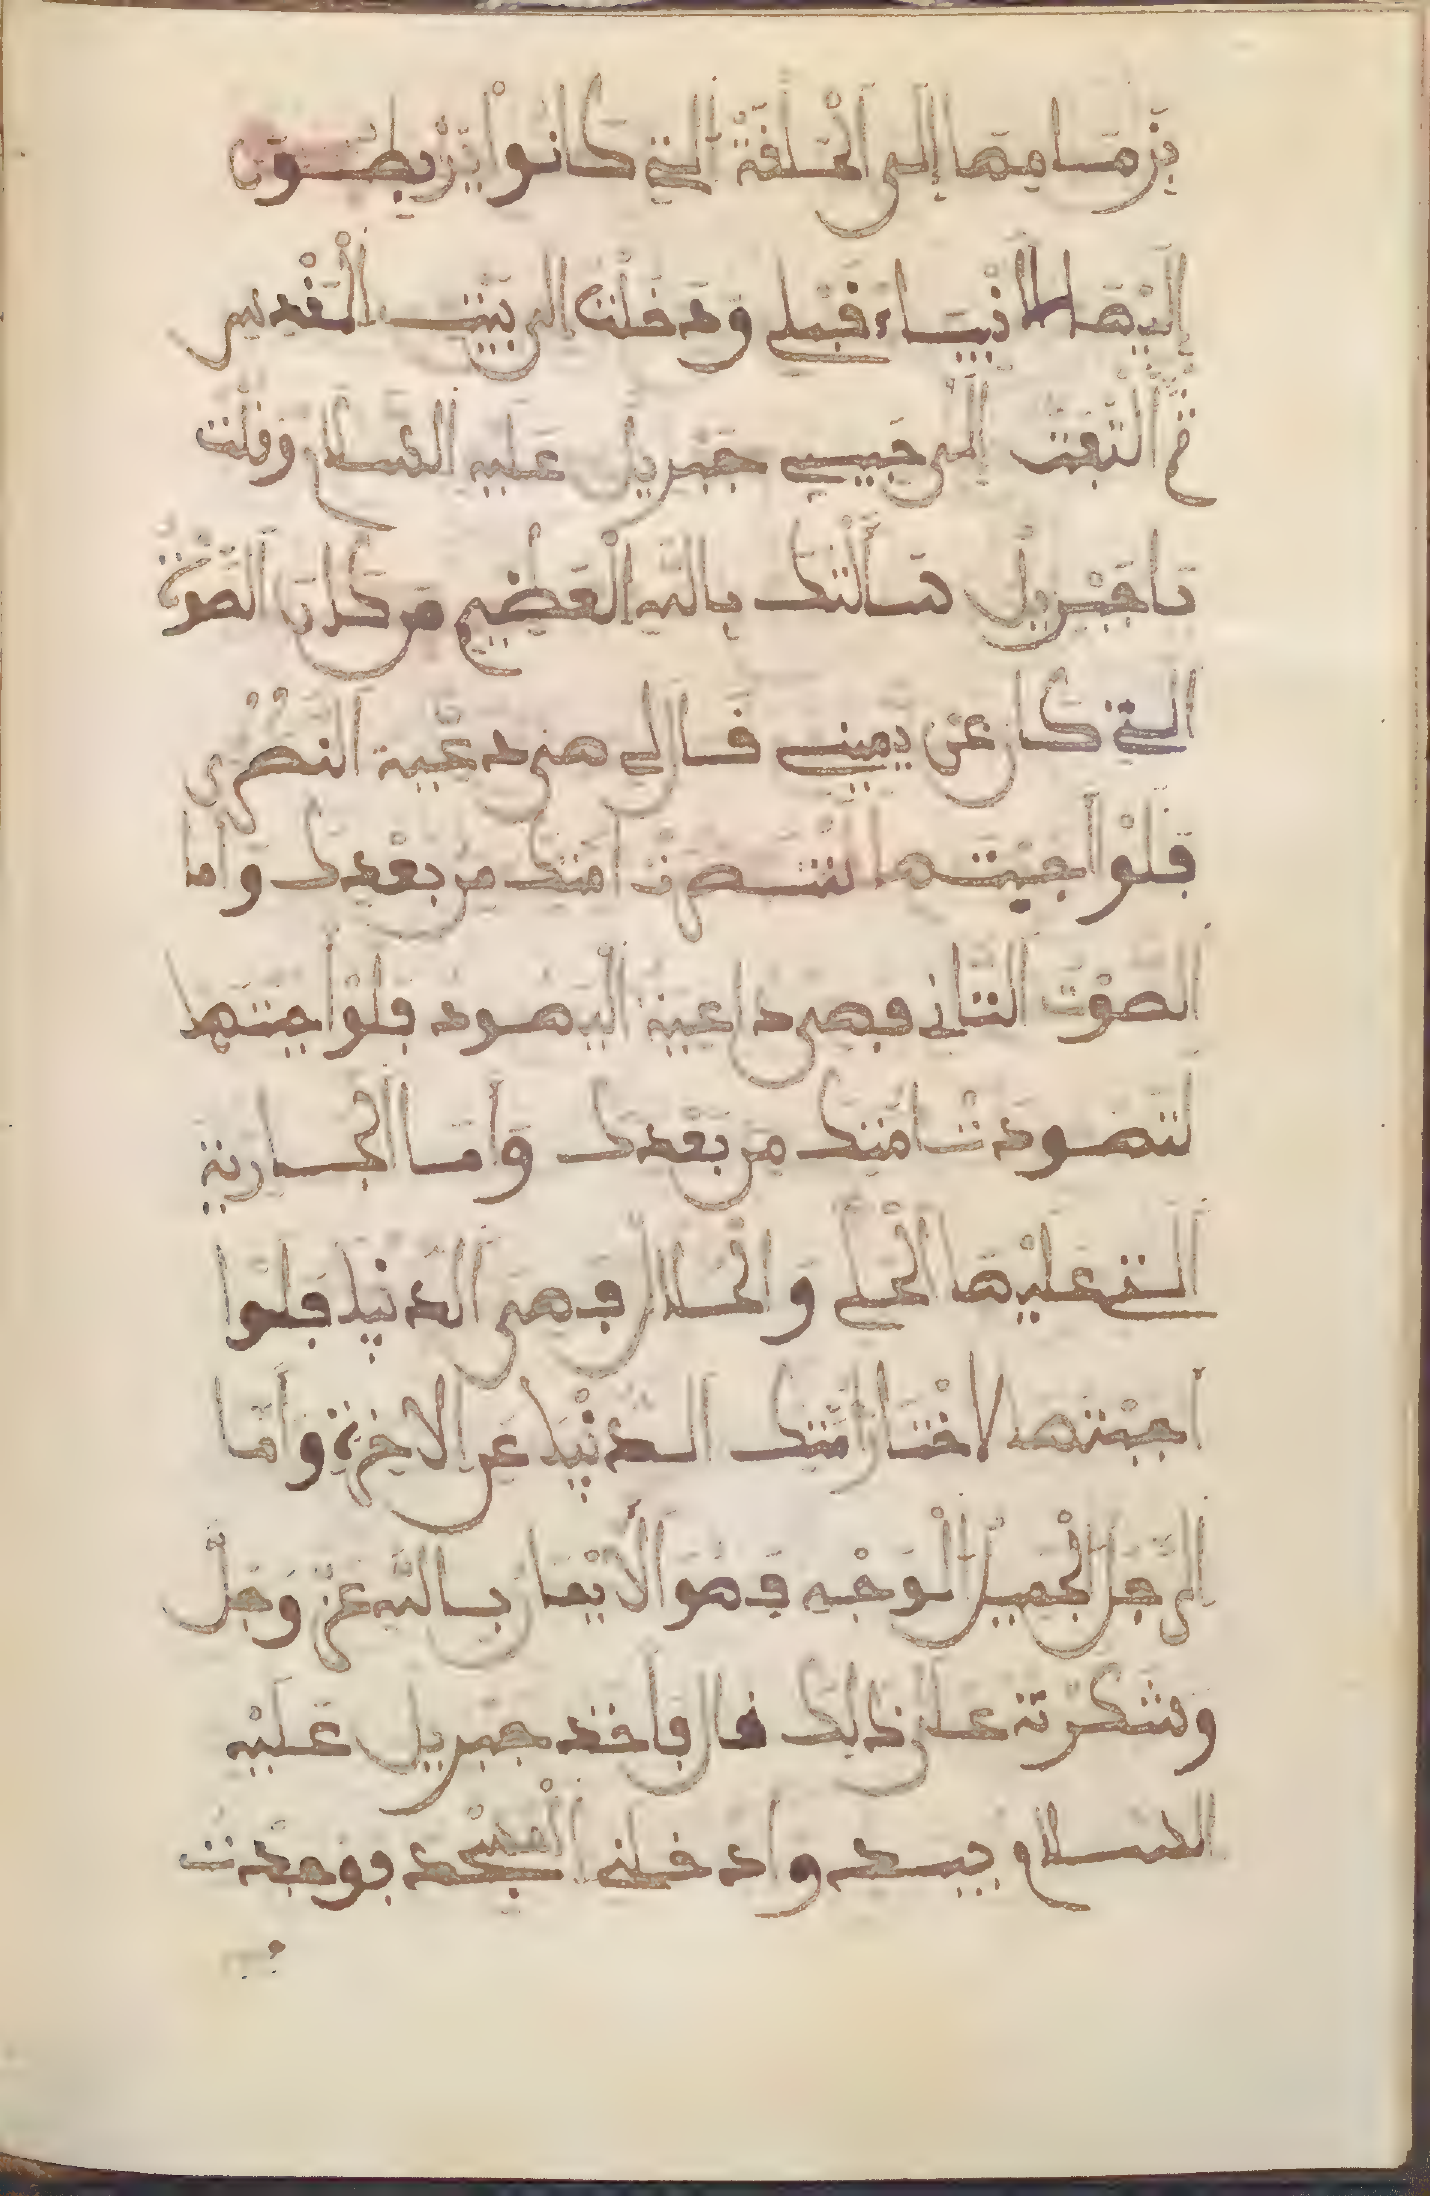 بزمامها إلى الحلقة التي كانوا يربطون
إليها الأنبياء قبلي ودخلت إلى بيت المقدس
ثم التفت إلى حبيبي جبريل عليه السلام وقلت
يا جبريل سألتك بالله العظيم من كان الصوت
التي كان عن يميني قال لي هي دعية النصرى
فلوا جبتها لتنصرت امتك من بعدك واما
الصوت الثاني فهي داعية اليهود فلوا جبتها
لتهودت امتك من بعدك وأما الجارية
التي عليها الحلي والحلل فهي الدنيا فلوا
اجبتها لاختار امتك الدنيا عن الاخرة وأما
الرجل الجميل الوجه فهو الأيمان بالله عز وجل
وشكرته على ذلك قال فأخذ جبريل عليه
السلام بيده وادخلني المسجد فوجدت